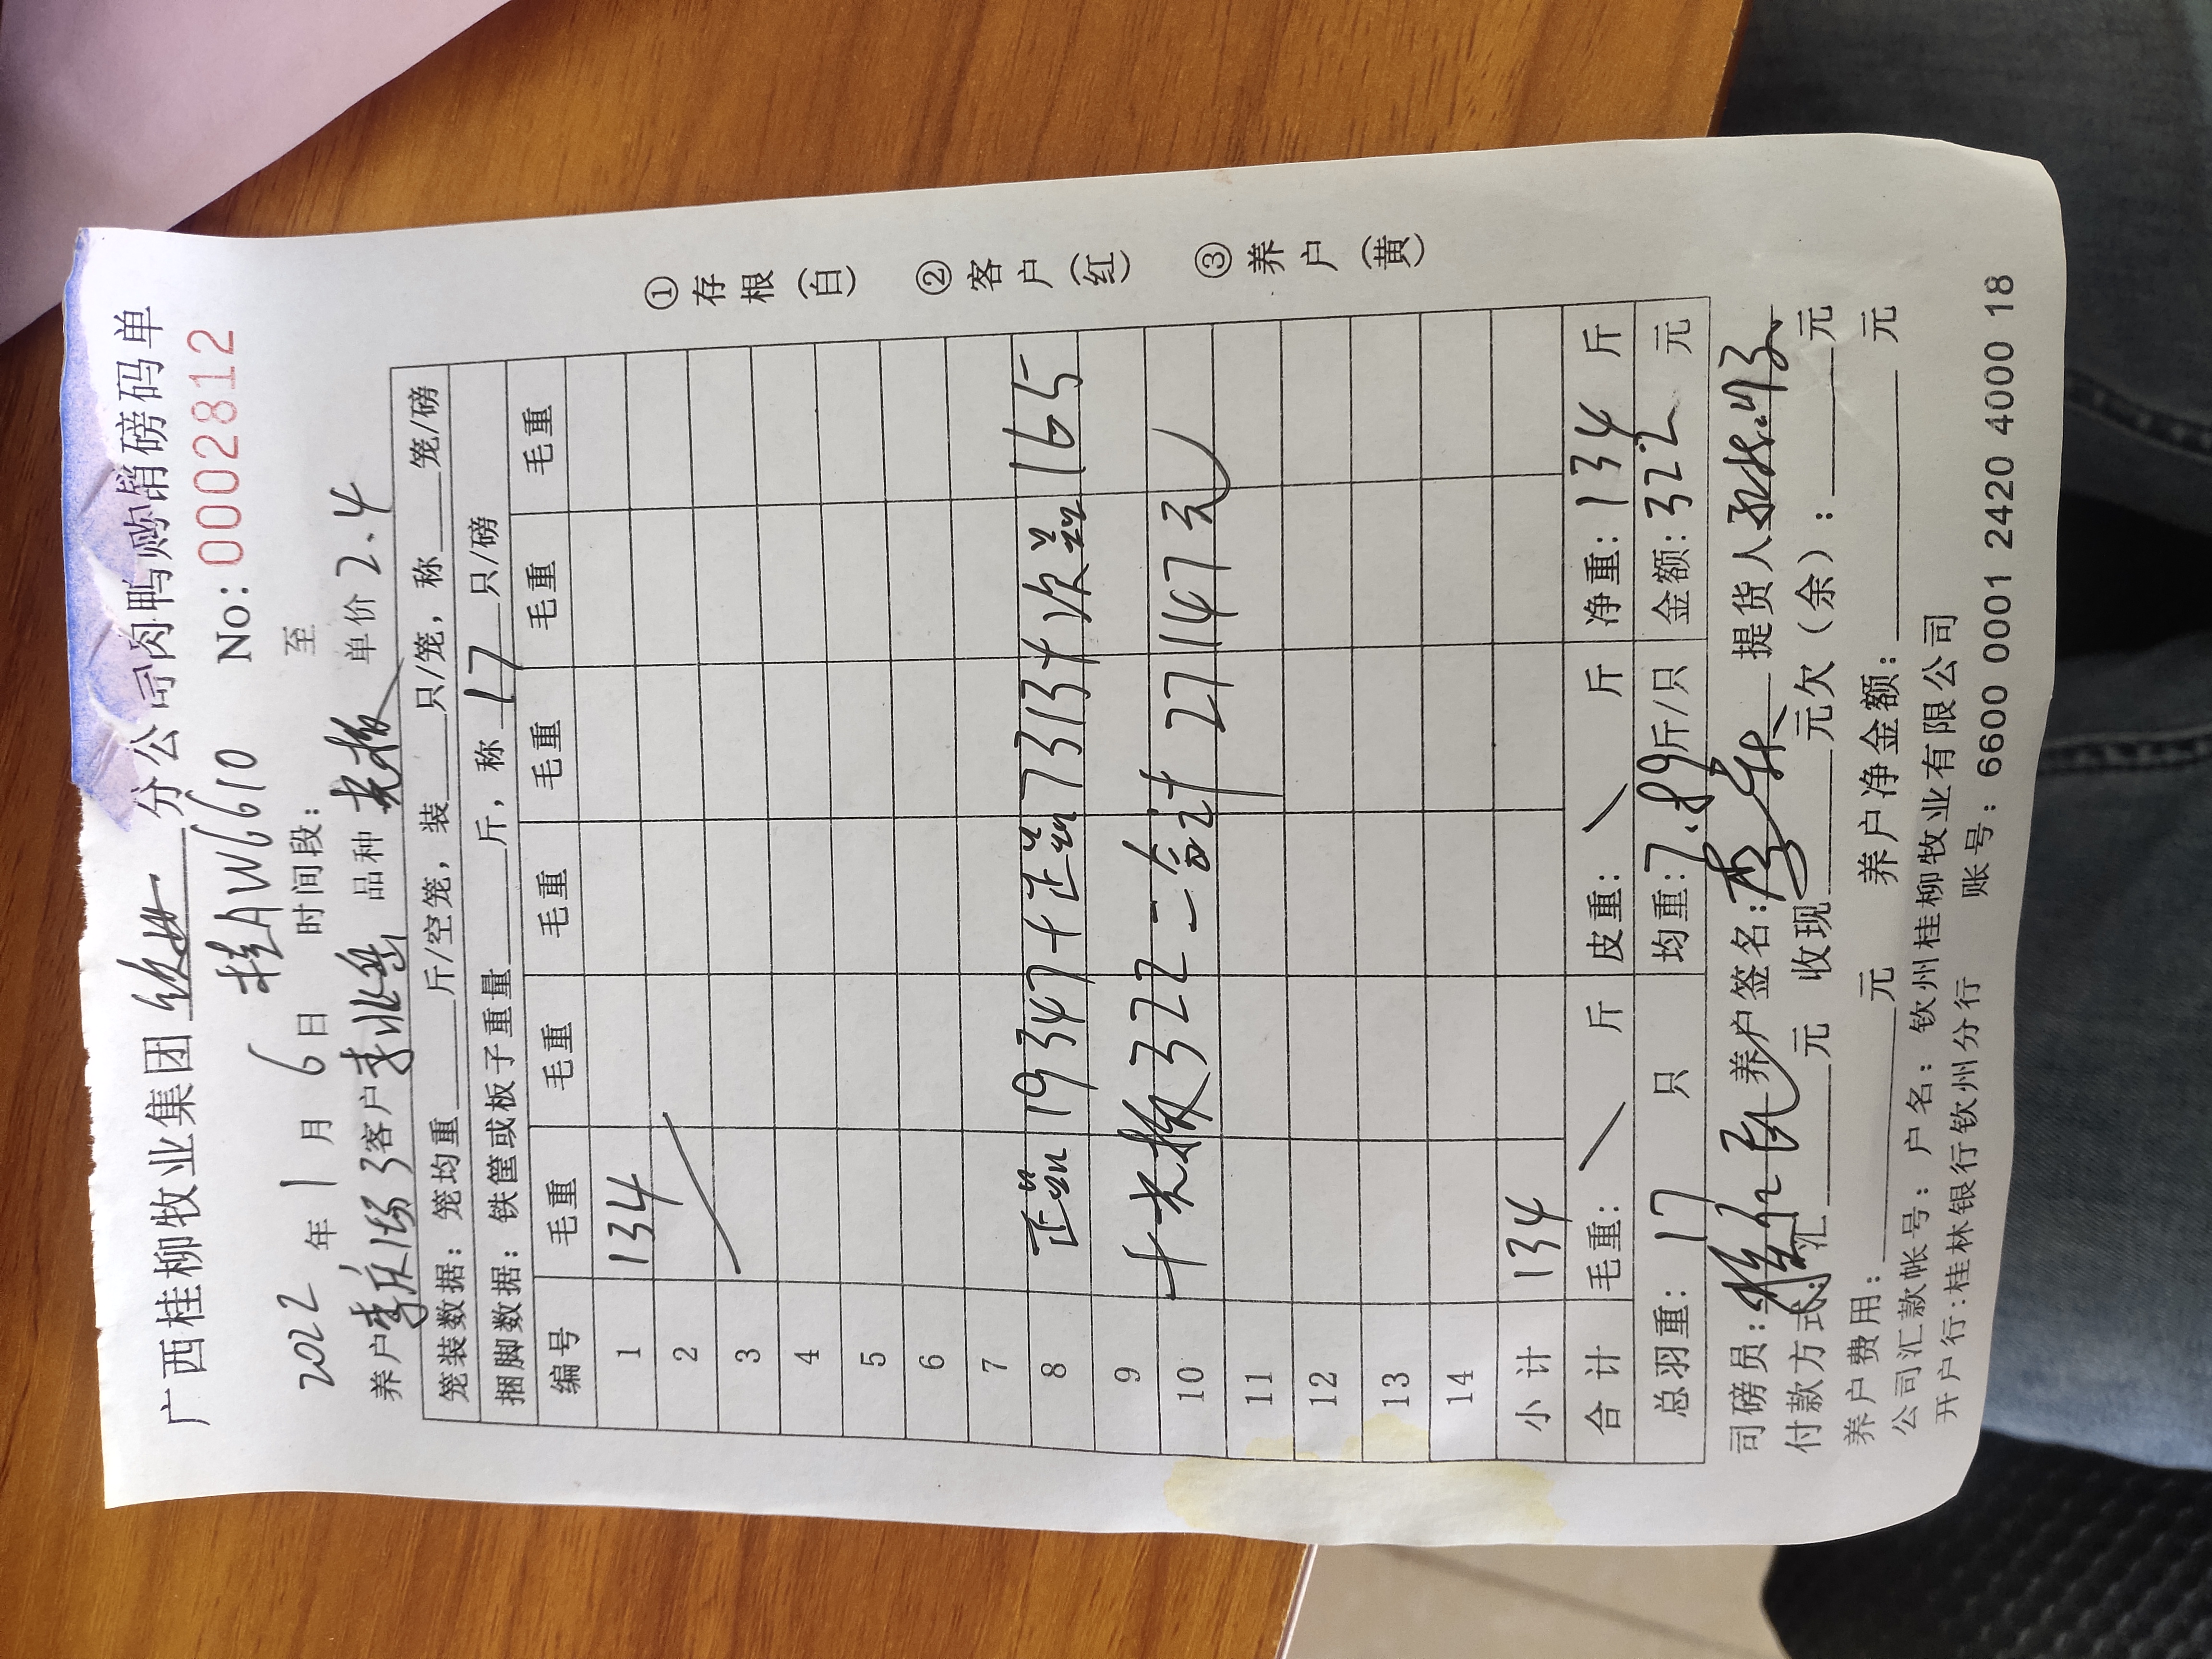 广西桂柳牧业集团 钦州 分公司肉鸭购销磅码单
桂AW6610 No: 0002812
2022 年 1 月 6 日 时间段: 至
养户 李庆场3 客户 李兆 品种 老板 单价 2.4
笼装数据: 笼均重 斤/空笼, 装 只/笼, 称 笼/磅
捆脚数据: 铁筐或板子重量 斤, 称 17 只/磅
编号 毛重 毛重 毛重 毛重 毛重 毛重
1 134
2
3
4
5
6
7
8 正品 19347+正品7313+次品165
9
10 +老板322=合计 27147元
11
12
13
14
小计 134
合计 毛重: 斤 皮重: 斤 净重: 134 斤
总羽重: 17 只 均重: 7.89斤/只 金额: 322 元
司磅员: 养户签名: 李 提货人
付款方式: 汇 元 收现 元欠(余): 元
养户费用: 元 养户净金额: 元
公司汇款帐号: 户名: 钦州桂柳牧业有限公司
开户行:桂林银行钦州分行 账号: 6600 0001 2420 4000 18
①存根(白) ②客户(红) ③养户(黄)